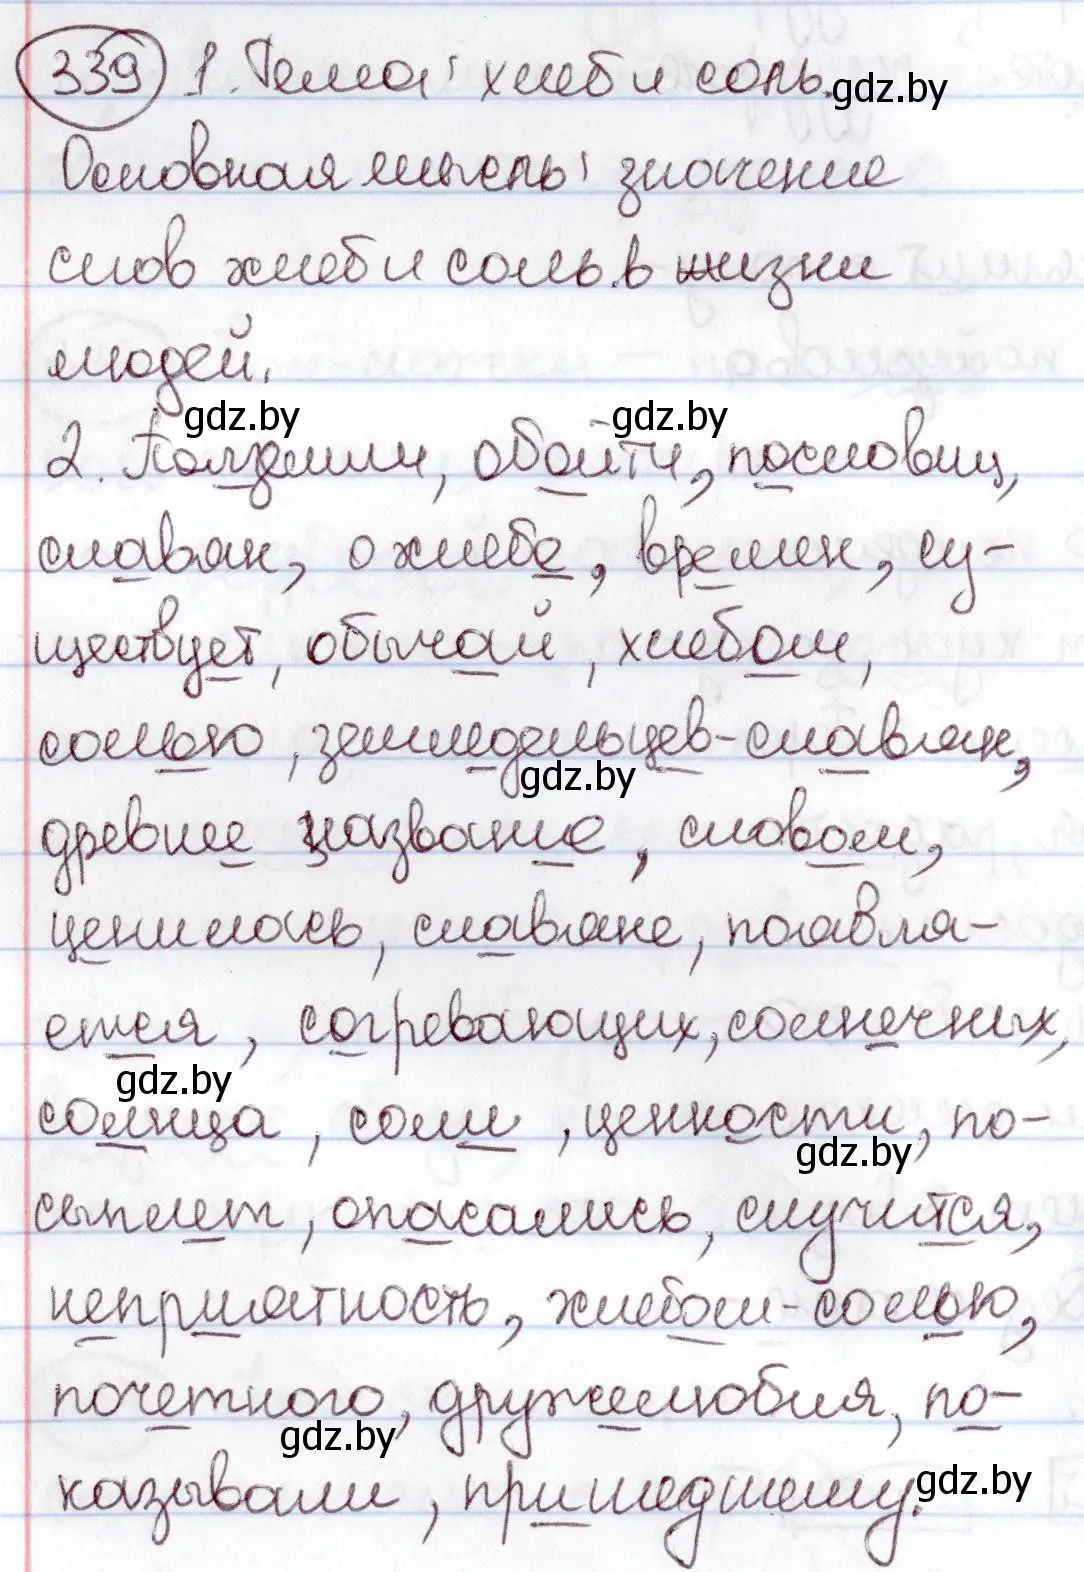 339 1. Тема: хлеб и соль.
gdz.by
Основная мысль: значение
слов хлеб и соль в жизни
людей.
gdz.by gdz.by
2. обойти, пословиц,
славян, о хлебе, времен, су-
ществует, обычай, хлебом,
солью, земледельцев-славян,
gdz.by
древнее название, словом,
ценилась, славяне, появля-
ется, согревающих, солнечных,
gdz.by
солнца, соли, ценности, по-
gdz.by
сыплет, опасались, случится,
неприятность, хлебом-солью,
почетного, дружелюбия, по-
gdz.by
казывали, пришедшему.
gdz.by